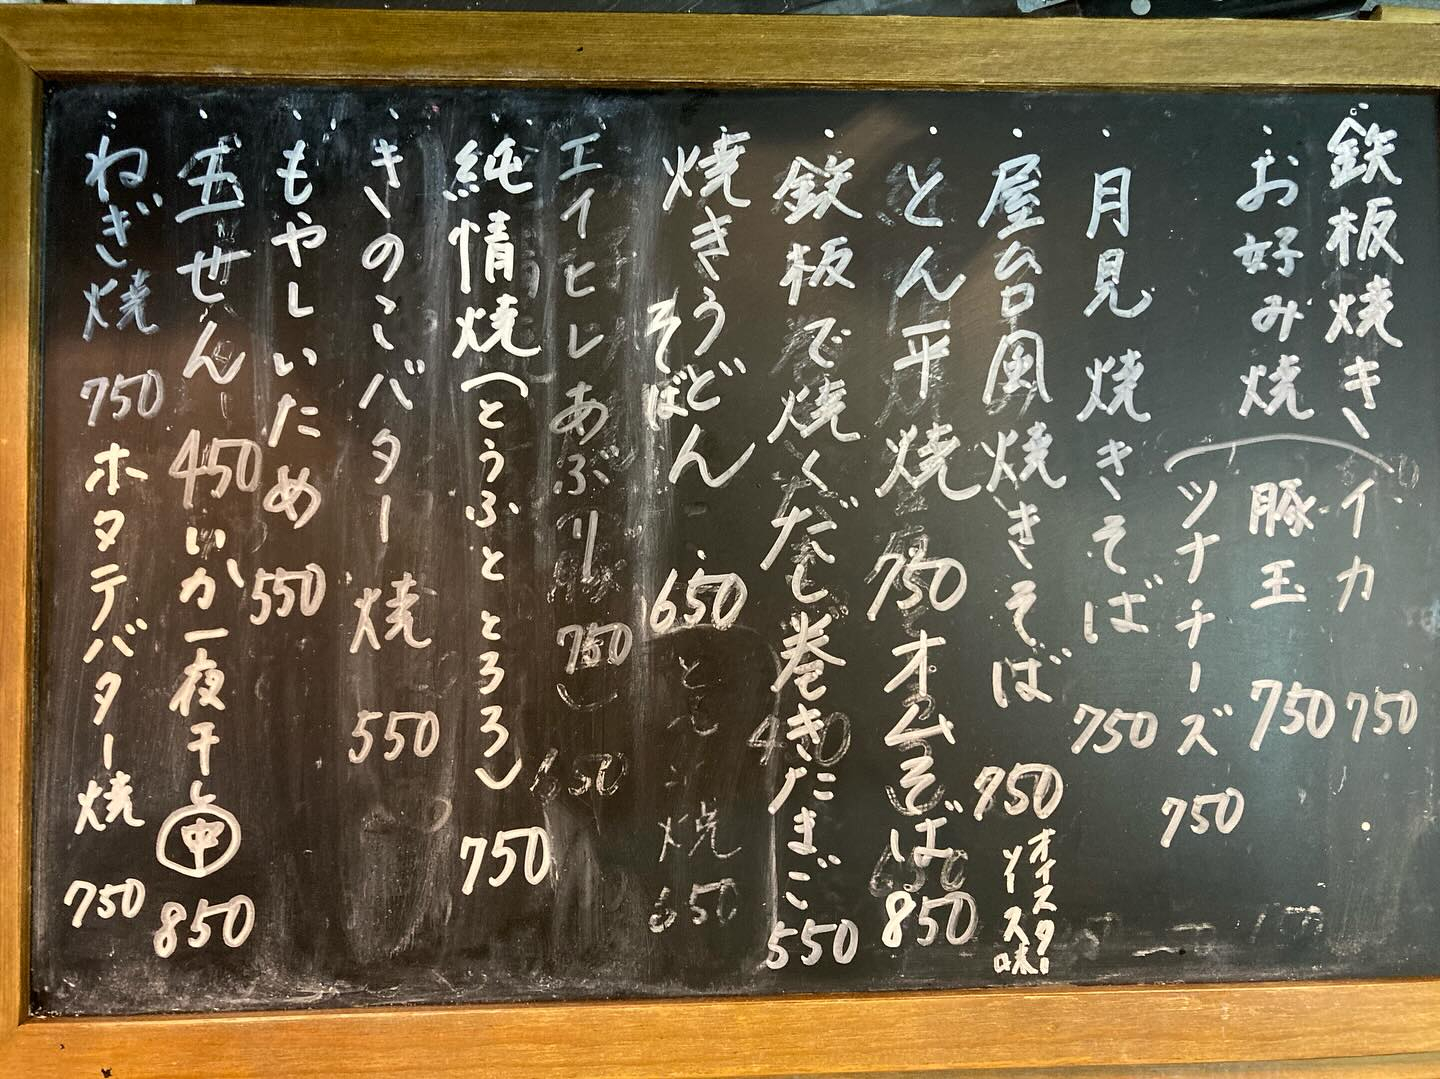 鉄板焼き
お好み焼
イカ 750
豚玉 750
ツナチーズ 750
月見焼きそば 750
屋台風焼きそば 750
オイスターソース味
とん平焼 750
オムそば 850
鉄板で焼くだし巻きたまご 550
焼きうどん
そば
650
エイヒレあぶり
750
純情焼(とうふととろろ) 750
きのこバター焼 550
もやしいため 550
五せん 450
いか一夜干し 中 850
ねぎ焼 750
ホタテバター焼 750